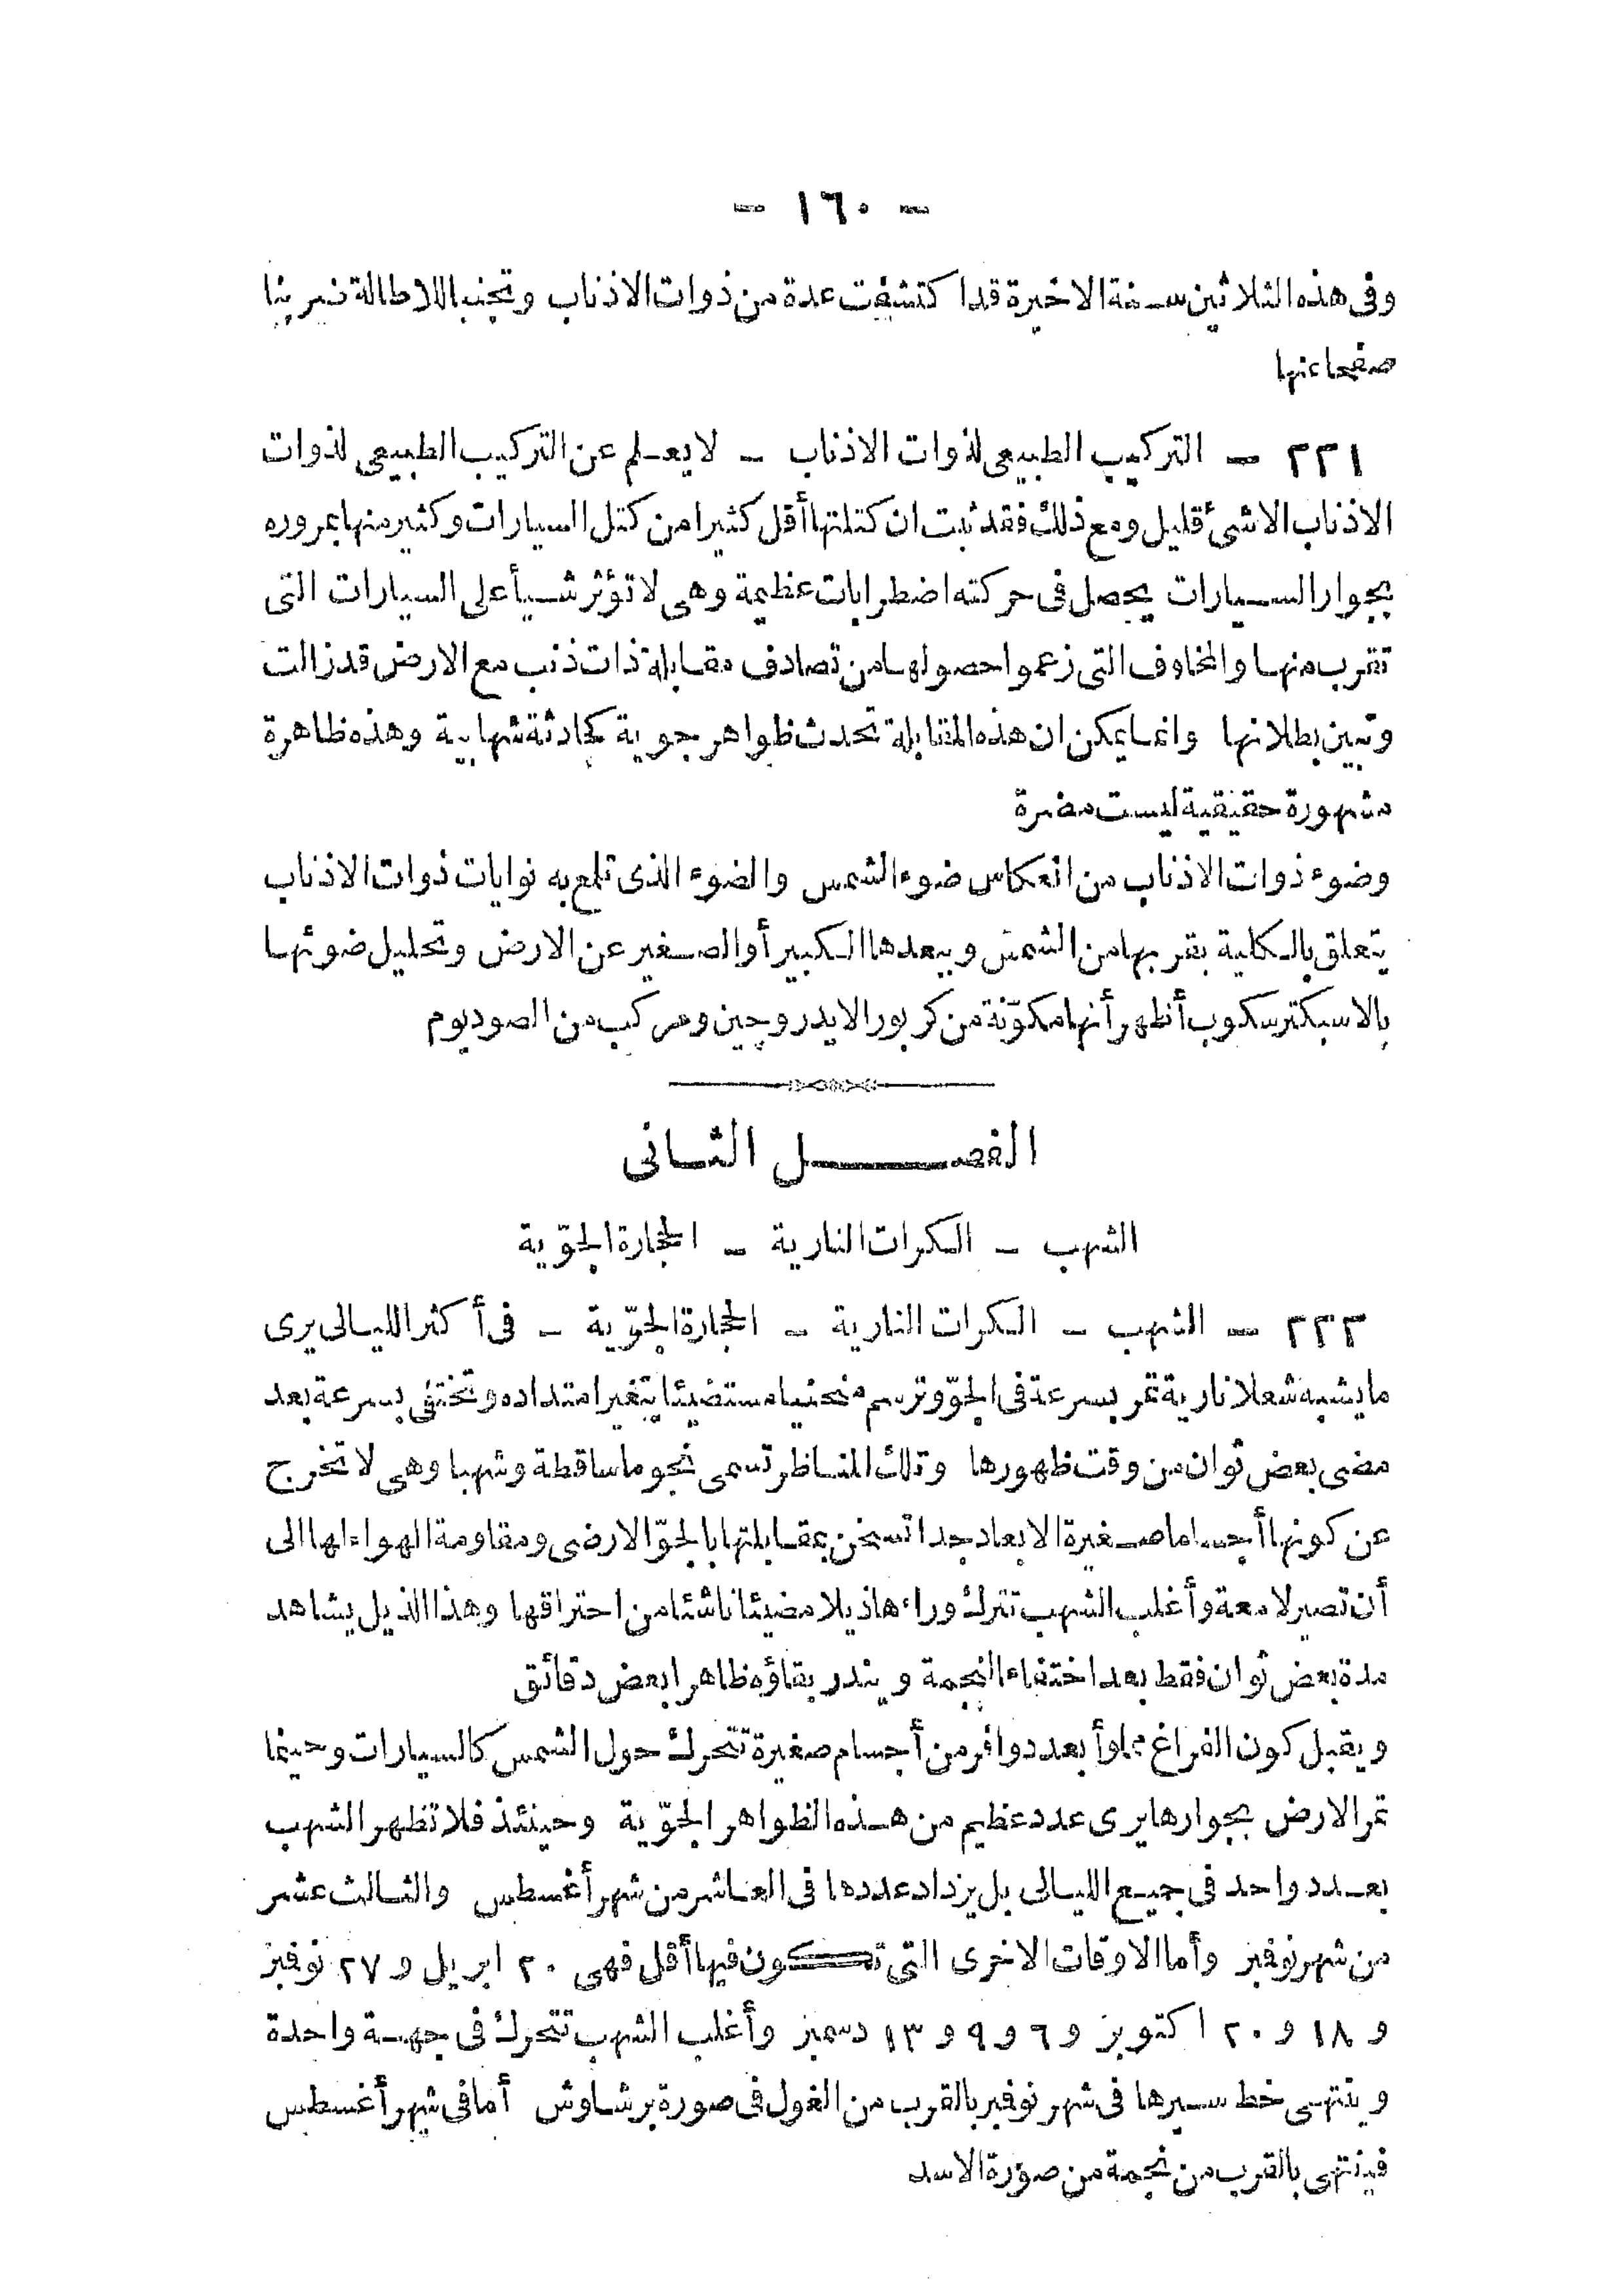 - ١٦٠ -
وفى هذه الثلاثين سنة الاخيرة قد اكتشفت عدة من ذوات الاذناب وتجنبا للاطالة ضربنا
صفحا عنها
٢٢١ - التركيب الطبيعى لذوات الاذناب - لا يعلم عن التركيب الطبيعى لذوات
الاذناب الا شئ قليل ومع ذلك فقد ثبت ان كتلتها أقل كثيرا من كتل السيارات وكثير منها بمروره
بجوار السيارات يحصل فى حركته اضطرابات عظيمة وهى لا تؤثر شيأ على السيارات التى
تقرب منها والمخاوف التى زعموا حصولها من تصادف مقابلة ذات ذنب مع الارض قد زالت
وتبين بطلانها وانما يمكن ان هذه المقابلة تحدث ظواهر جوية كحادثة شهابية وهذه ظاهرة
مشهورة حقيقية ليست مضرة
وضوء ذوات الاذناب من انعكاس ضوء الشمس والضوء الذى تلمع به نوايات ذوات الاذناب
يتعلق بالكلية بقربها من الشمس وببعدها الكبير أو الصغير عن الارض وتحليل ضوئها
بالاسبكترسكوب أظهر أنها مكوّنة من كربور الايدروچين ومركب من الصوديوم
الفصل الثانى
الشهب - الكرات النارية - الحجارة الجوّية
٢٢٢ - الشهب - الكرات النارية - الحجارة الجوّية - فى أكثر الليالى يرى
ما يشبه شعلا نارية تمر بسرعة فى الجوّ وترسم منحنيا مستضيئا يتغير امتداده وتختفى بسرعة بعد
مضى بعض ثوان من وقت ظهورها وتلك المناظر تسمى نجوما ساقطة وشهبا وهى لا تخرج
عن كونها أجساما صغيرة الابعاد جدا تسخن بمقابلتها بالجوّ الارضى ومقاومة الهواء لها الى
أن تصير لامعة وأغلب الشهب تترك وراءها ذيلا مضيئا ناشئا من احتراقها وهذا الذيل يشاهد
مدة بعض ثوان فقط بعد اختفاء النجمة ويندر بقاؤه ظاهرا بعض دقائق
ويقبل كون الفراغ مملوأ بعدد وافر من أجسام صغيرة تتحرك حول الشمس كالسيارات وحينما
تمر الارض بجوارها يرى عدد عظيم من هذه الظواهر الجوّية وحينئذ فلا تظهر الشهب
بعدد واحد فى جميع الليالى بل يزداد عددها فى العاشر من شهر أغسطس والثالث عشر
من شهر نوفمبر وأما الاوقات الاخرى التى تكون فيها أقل فهى ٢٠ ابريل و ٢٧ نوفمبر
و ١٨ و ٢٠ اكتوبر و ٦ و ٩ و ١٣ دسمبر وأغلب الشهب تتحرك فى جهة واحدة
وينتهى خط سيرها فى شهر نوفمبر بالقرب من الغول فى صورة برشاوش أما فى شهر أغسطس
فينتهى بالقرب من نجمة من صورة الاسد